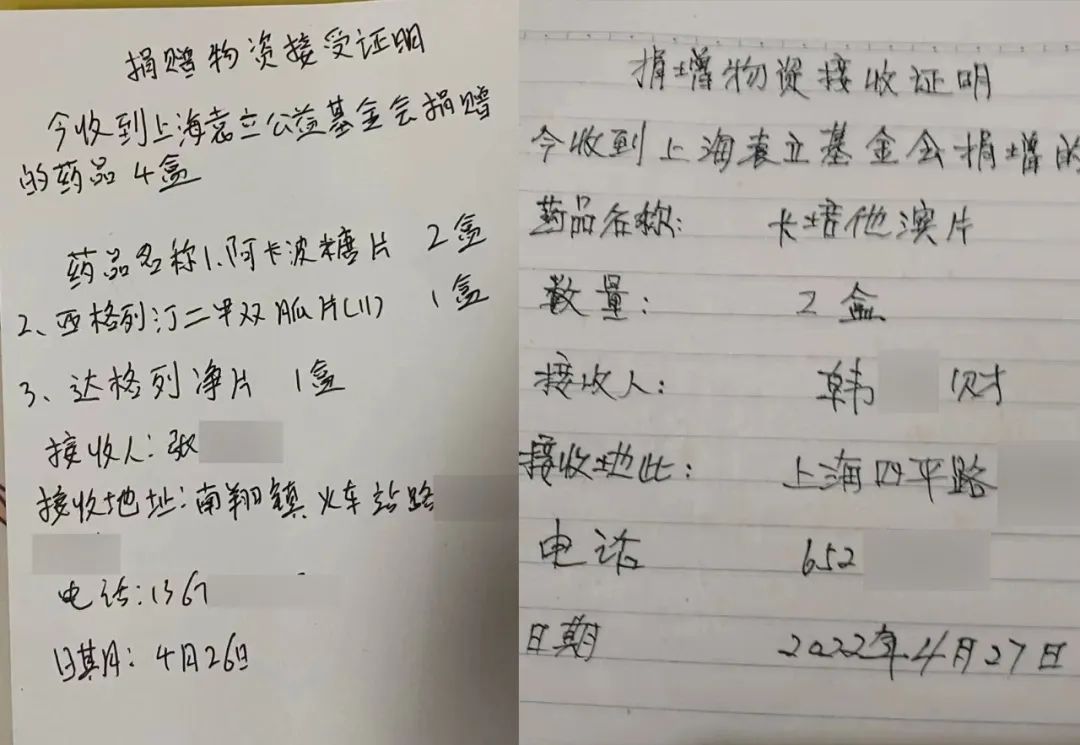 捐赠物资接受证明
今收到上海袁立公益基金会捐赠
的药品4盒
药品名称1.阿卡波糖片 2盒
2、西格列汀二甲双胍片(II) 1盒
3、达格列净片 1盒
接收人:张
接收地址:南翔镇火车站路
电话:1367
日期:4月26日
捐增物资接收证明
今收到上海袁立基金会捐增的
药品名称: 卡培他滨片
数量: 2盒
接收人: 韩 财
接收地此: 上海四平路
电话 652
日期 2022年4月27日